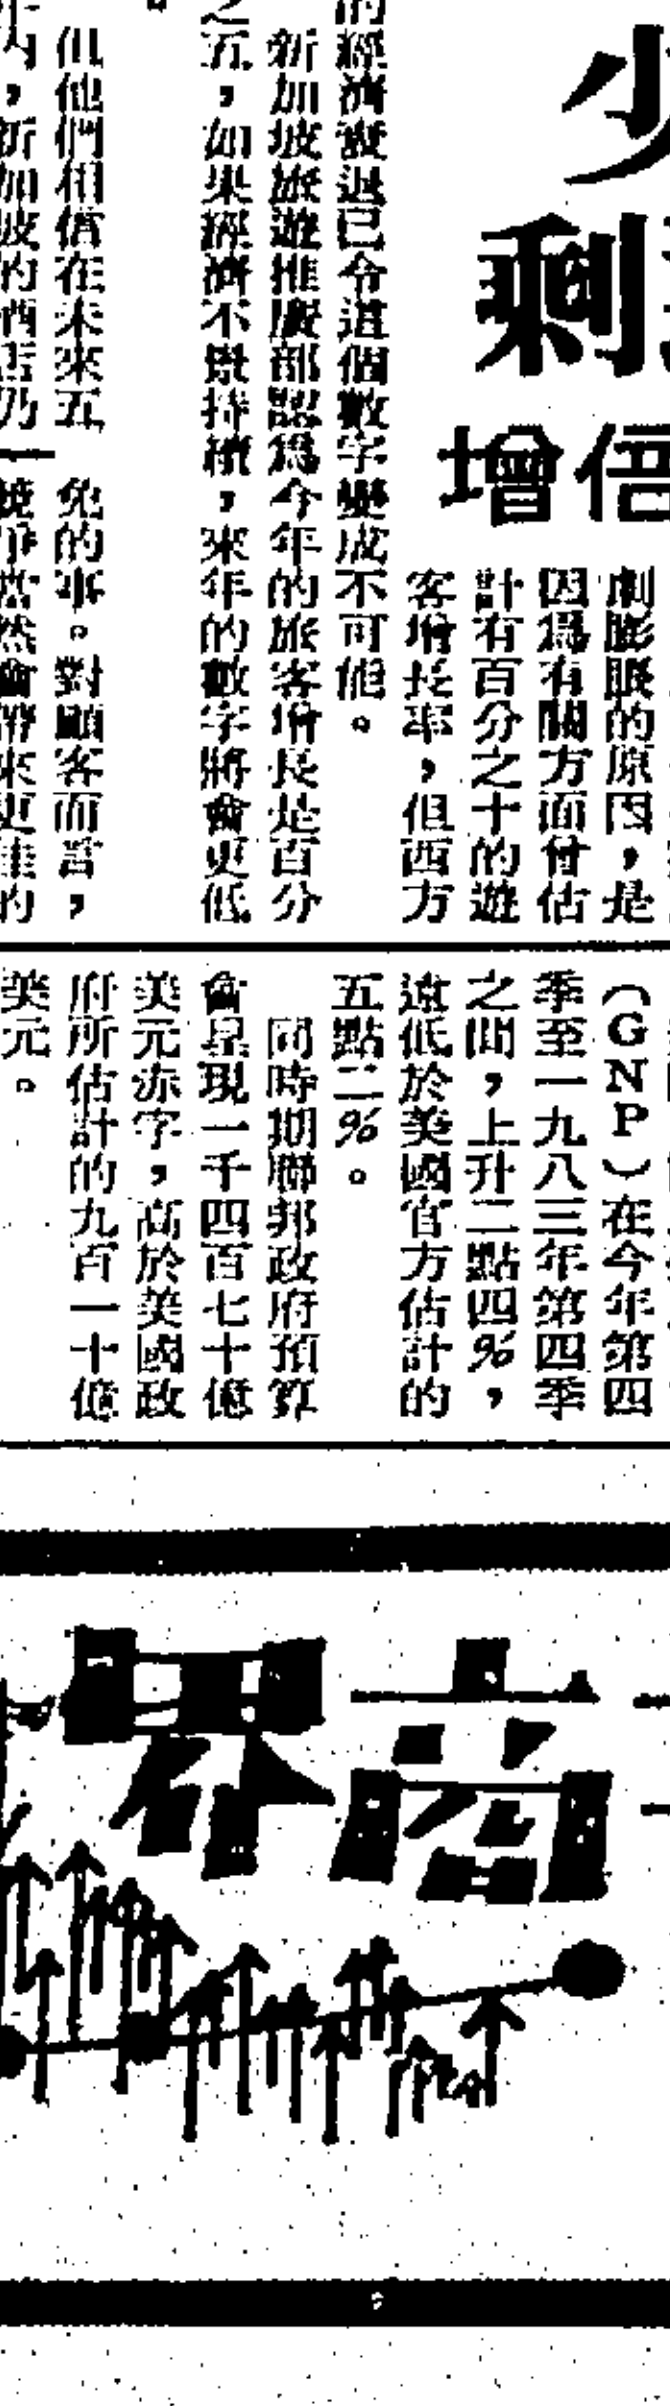 少
剩
倍增
劇膨脹的原因,是
因爲有關方面曾估
計有百分之十的遊
客增長率,但西方
的經濟衰退已令這個數字變成不可能。
新加坡旅遊推廣部認爲今年的旅客增長是百分
之五,如果經濟不景持續,來年的數字將會更低
。
但他們相信在未來五
年內,新加坡的酒店仍
免的事。對顧客而言,
競爭當然會帶來更佳的
(GNP)在今年第四
季至一九八三年第四季
之間,上升二點四%,
遠低於美國官方估計的
五點二%。
同時期聯邦政府預算
會呈現一千四百七十億
美元赤字,高於美國政
府所估計的九百一十億
美元。
商界